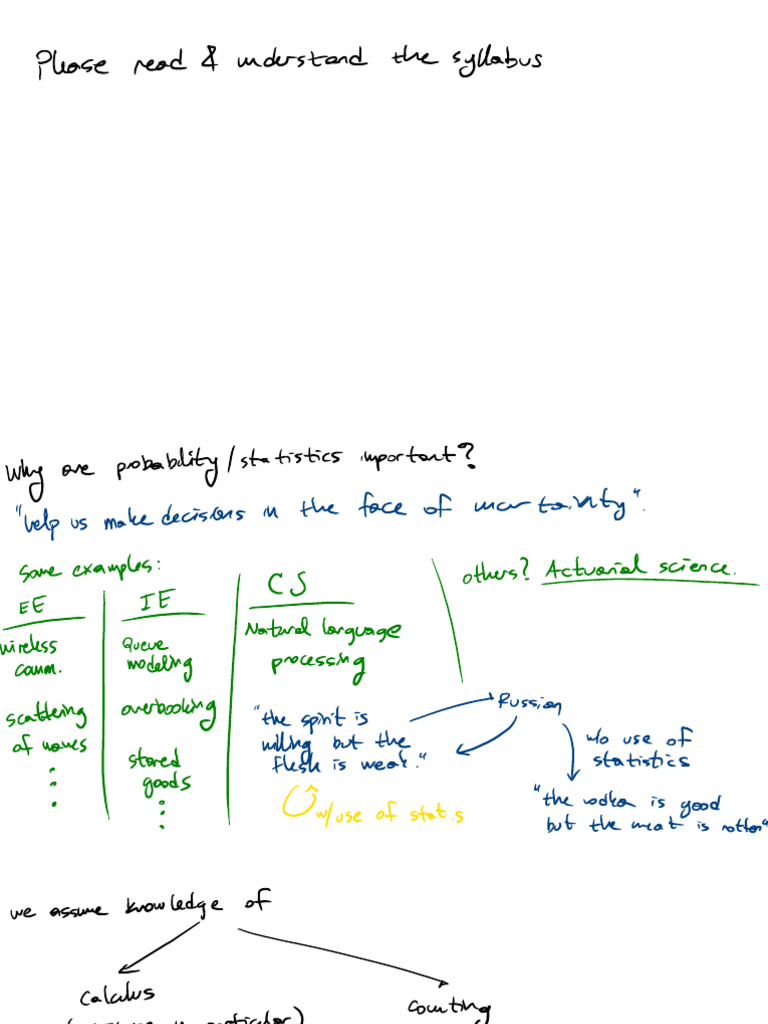 Please read & understand the syllabus
Why are probability/statistics important?
"help us make decisions in the face of uncertainity".
Some examples:
others? Actuarial science.
EE
wireless
comm.
scattering
of waves
IE
Queue
modeling
overbooking
stored
goods
CS
Natural language
processing
"the spirit is
willing but the
flesh is weak."
Russian
w/o use of
statistics
"the vodka is good
but the meat is rotten"
w/use of stats
we assume knowledge of
Calculus
Counting
particular)